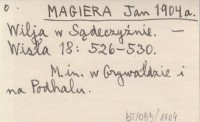 0. MAGIERA Jan 1904a.
Wilja w Sądeczyźnie. —
Wisła 18: 526-530.
M.in. w Grywałdzie i
na Podhalu.
BJ/089/1904